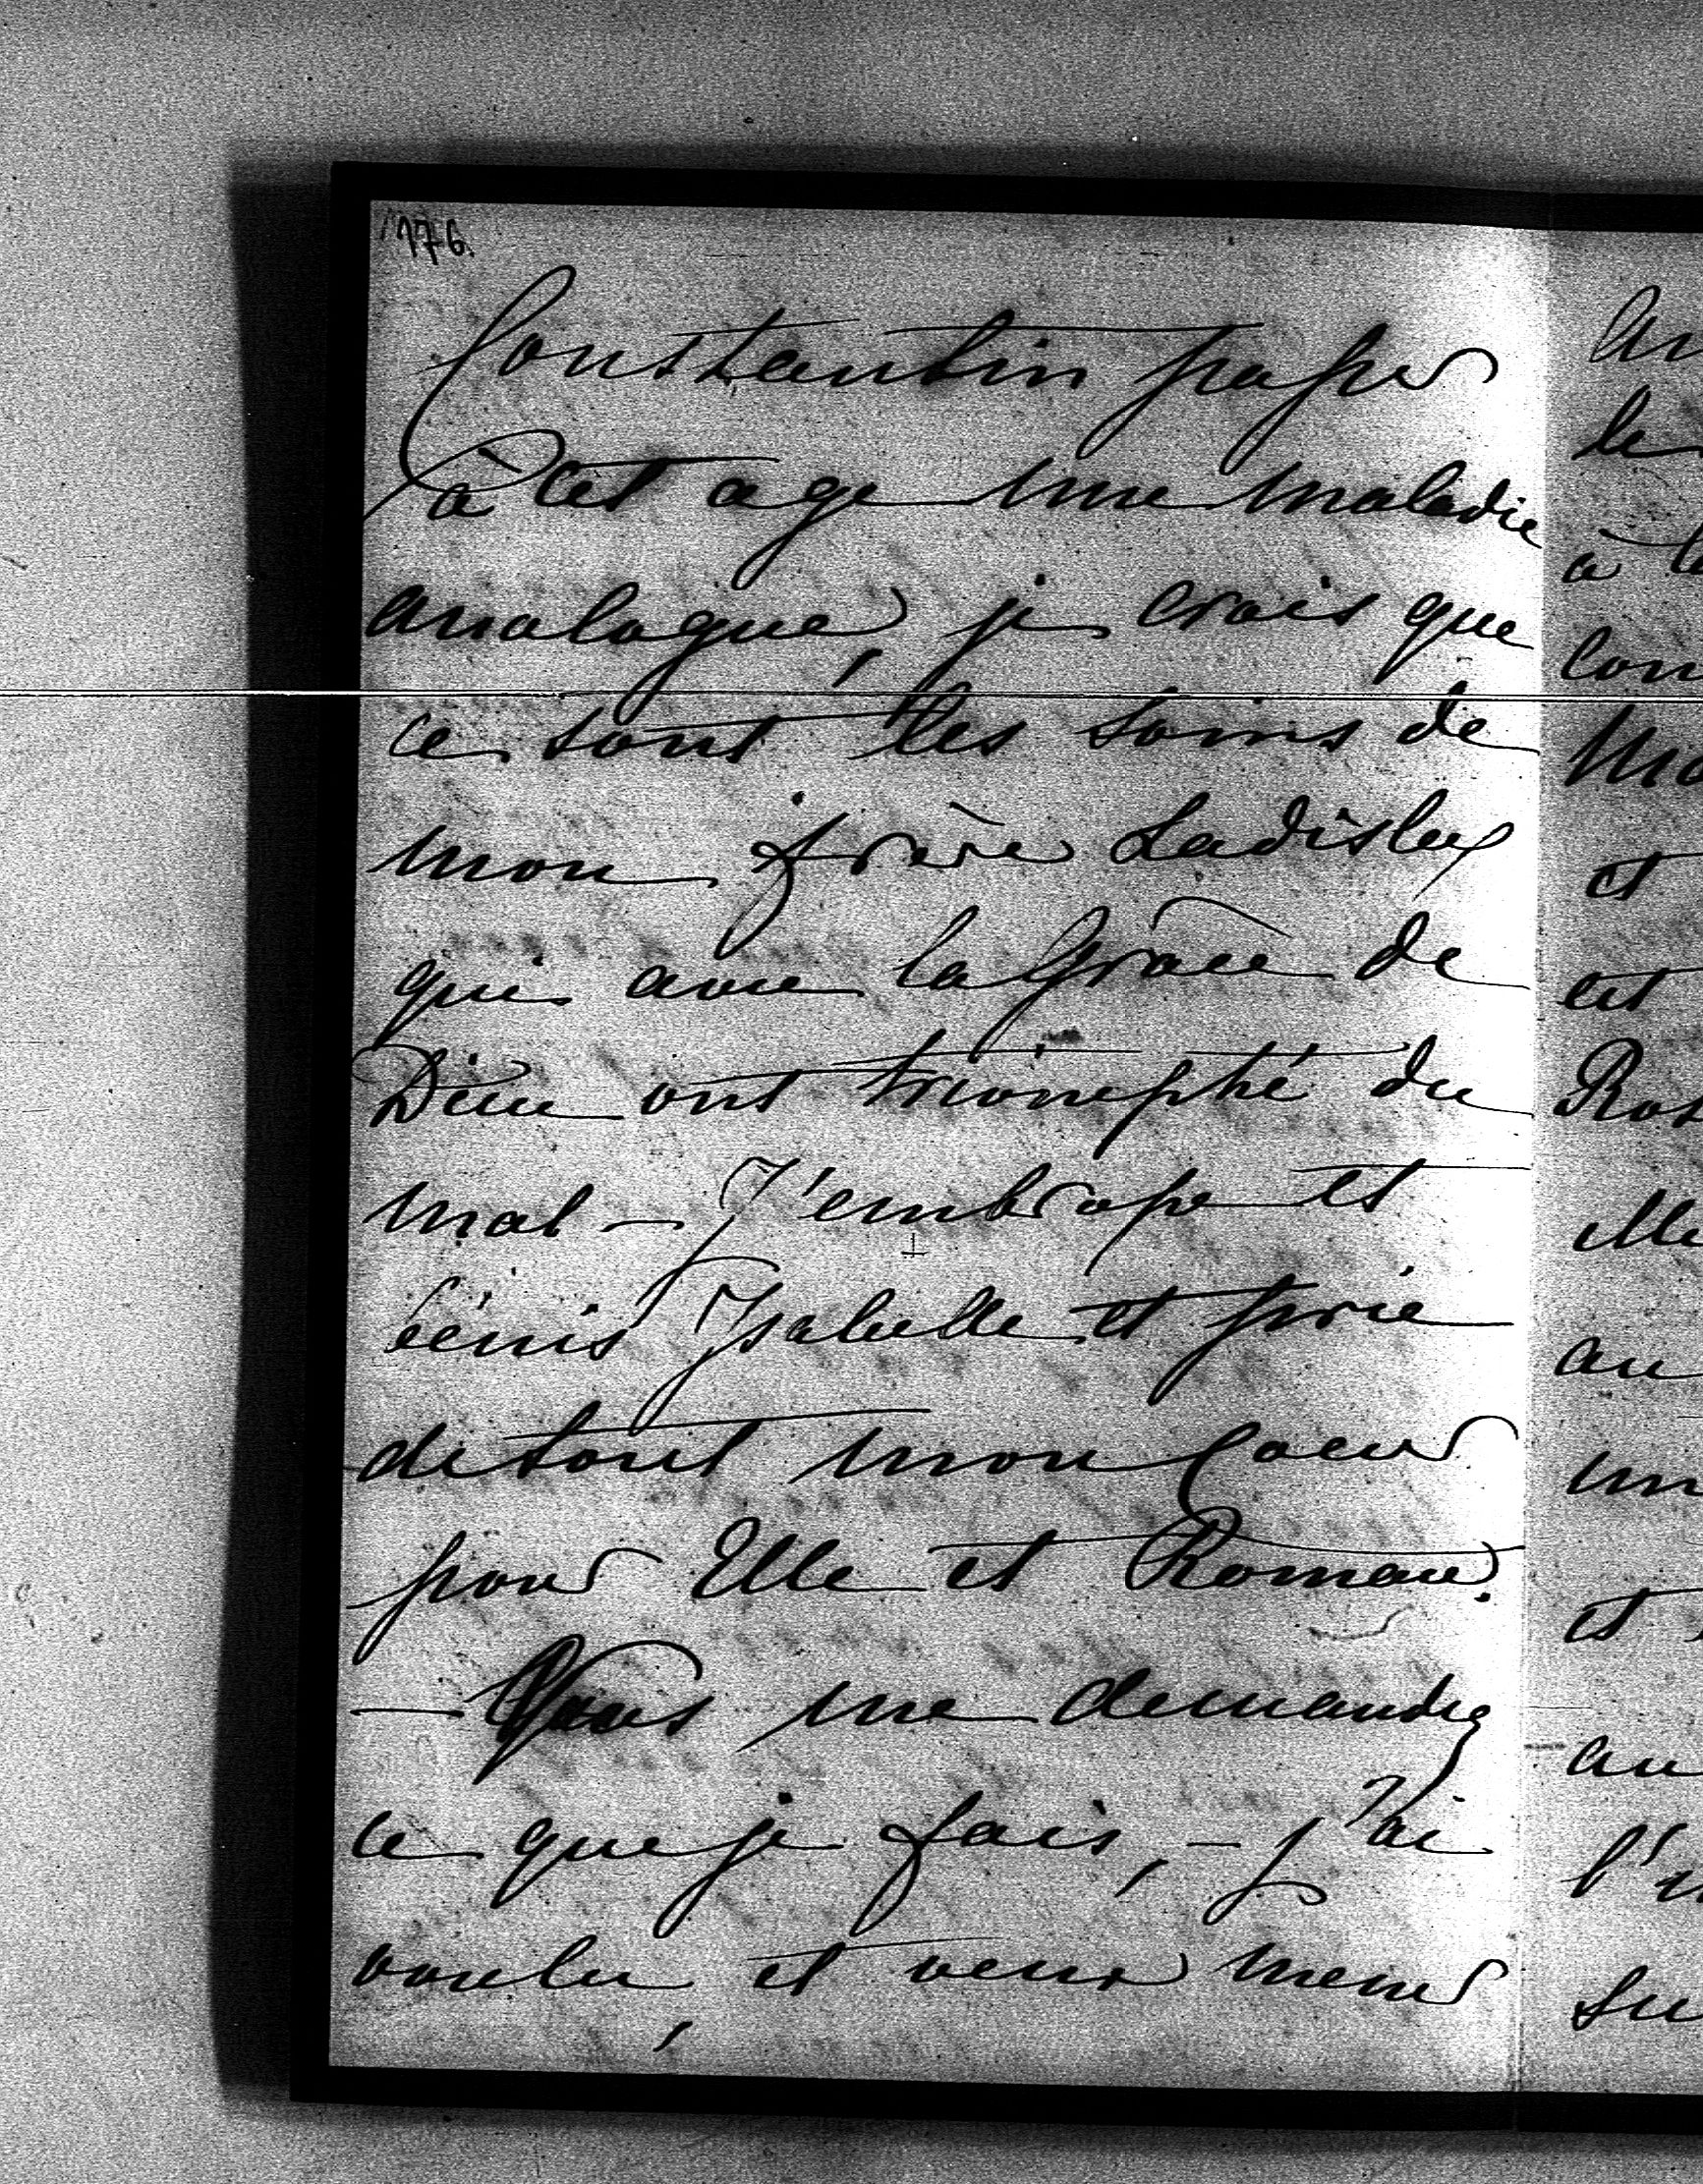 176.
Constantin passer
à cet age une maladie
analogue, je crois que
ce sont les soins de
mon frère Ladislas
qui avec la Grâce de
Dieu ont triomphé du
mal — J'embrasse et
bénis Isabelle et prie
de tout mon Coeur
pour Elle et Roman.
— Vous me demandez
ce que je fais, — j'ai
voulu, et veux mener
le
à
et
et
elle
au
un
et
au